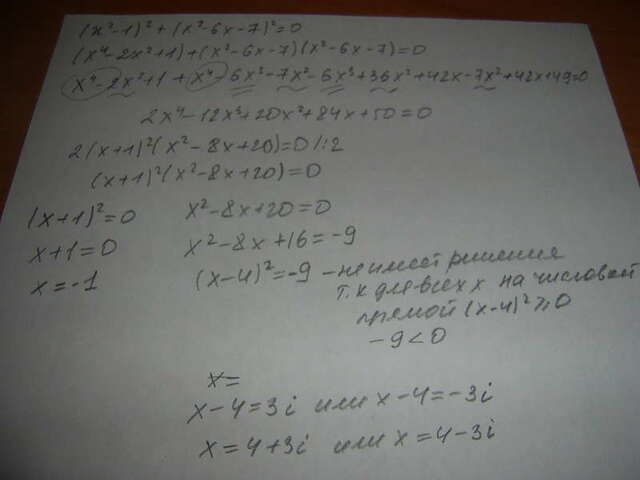 (x²-1)²+(x²-6x-7)²=0
(x⁴-2x²+1)+(x²-6x-7)(x²-6x-7)=0
x⁴-2x²+1+x⁴-6x³-7x²-6x³+36x²+42x-7x²+42x+49=0
2x⁴-12x³+20x²+84x+50=0
2(x+1)²(x²-8x+20)=0/:2
(x+1)²(x²-8x+20)=0
(x+1)²=0
x+1=0
x=-1
x²-8x+20=0
x²-8x+16=-9
(x-4)²=-9 - не имеет решения
т.к для всех x на числовой
прямой (x-4)²≥0
-9<0
x=
x-4=3i или x-4=-3i
x=4+3i или x=4-3i